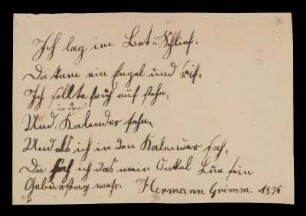 Ich lag im Bet u. Schlief.
Da kam ein Engel und rif,
Ich sollte früh auf stehn,
in den
Und Kalender sehn,
Und als ich in den Kalender sah,
Da sah ich das mein Onkel sein
Geburstag wahr. Hermann Grimm 18